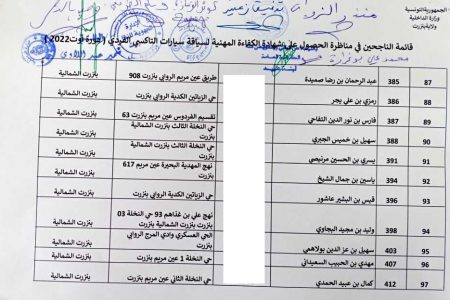 الجمهورية التونسية
وزارة الداخلية
ولاية بنزرت
قائمة الناجحين في مناظرة الحصول على شهادة الكفاءة المهنية لسياقة سيارات التاكسي الفردي ( دورة أوت 2022 )
87 385 عبد الرحمان بن رضا صميدة طريق عين مريم الروابي بنزرت 908 بنزرت الشمالية
88 386 رمزي بن علي بجر حي الزياتين الكدية الروابي بنزرت بنزرت الشمالية
89 387 فارس بن نور الدين التفاحي تقسيم الفردوس عين مريم بنزرت 63 بنزرت الشمالية
90 388 سهيل بن خميس الجبري حي النخلة الثالث بنزرت الشمالية بنزرت الشمالية
91 393 يسري بن الحسين مرنيصي حي النخلة الثالث بنزرت الشمالية بنزرت الشمالية
92 394 ياسين بن جمال الشيخ نهج المهدية البحيرة عين مريم 617 بنزرت بنزرت الشمالية
93 396 قيس بن البشير عاشور حي الزياتين الكدية الروابي بنزرت بنزرت الشمالية
94 398 وليد بن مجيد البجاوي نهج علي بن غذاهم 93 حي النخلة 03 بنزرت الشمالية بنزرت الشمالية
95 403 سهيل بن عز الدين بولاهمي الحي العسكري وادي المرج الروابي بنزرت بنزرت الشمالية
96 407 مهدي بن الحبيب السعيداني حي النخلة 1 عين مريم بنزرت بنزرت الشمالية
97 412 كمال بن عبيد الحمدي حي النخلة الثاني عين مريم بنزرت بنزرت الشمالية